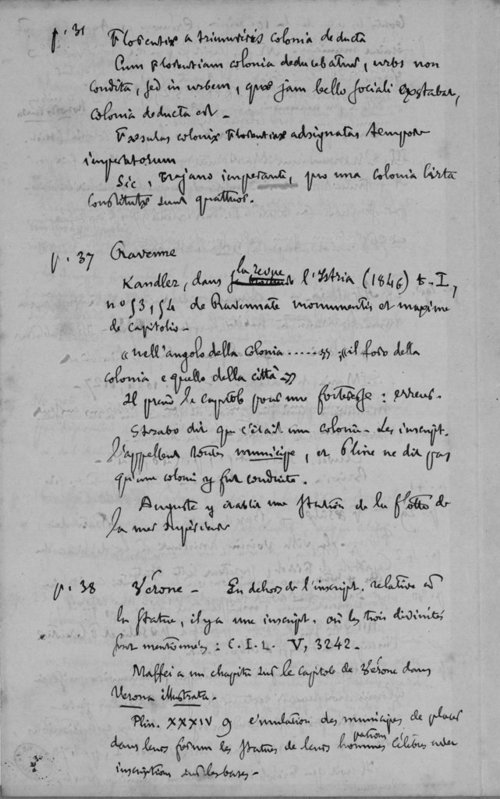 p. 31 Florentiæ a triumviris colonia deducta
Cum Florentiam colonia deducebatur, urbs non
condita, sed in urbem, quæ jam bello sociali exstabat,
colonia deducta est.
Fæsulas coloniæ Florentiæ adsignatas tempore
imperatorum
Sic, Trajano imperante, pro una colonia Cirta
constitutæ sunt quattuor.
p. 37 Ravenne
Kandler, dans la revue l'Istria (1846) t. I,
nº 53, 54 de Ravennate monumentis et maxime
de capitolio.
« nell'angolo della colonia ...... » « il foro della
colonia, e quello della città »
Il prend le capitole pour une forteresse : erreur.
Strabo dit que c'était une colonie. Les inscript.
l'appellent toutes municipe, et Pline ne dit pas
qu'une colonie y fut conduite.
Auguste y établit une station de la flotte de
la mer supérieure
p. 38 Vérone. En dehors de l'inscript. relative à
la statue, il y a une inscript. où les trois divinités
sont mentionnées : C. I. L. V, 3242.
Maffei a un chapitre sur le capitole de Vérone dans
Verona illustrata.
Plin. XXXIV 9 émulation des municipes de placer
dans leurs forum les statues de leurs hommes célèbres avec
inscription sur les bases.